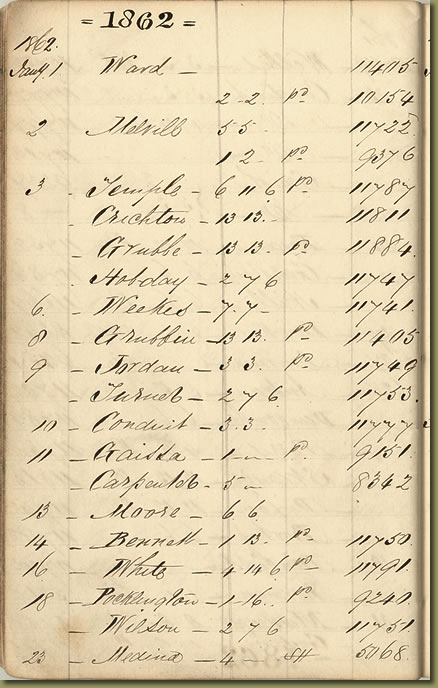 = 1862 =
1862.
Jany. 1 Ward — 11405
2 - 2 - pd 10154
2 Melvill 5 5 - 11722
1 2 - pd 9376
3 - Temple - 6 11 6 pd 11787
- Crichton - 13 13 - 11811
- Grubbe - 13 13 - pd 11884.
- Hobday - 2 7 6 11747
6. - Weekes - 7. 7 - 11741.
8 - Grubbin - 13 13. pd 11405
9 - Jordan - 3 3. pd 11749
- Turner - 2 7 6. 11753.
10 - Conduit - 3. 3. 11777
11 - Gaissa - 1 - - pd 9151.
- Carpenter - 5 - 8342
13 - Moore - 6 6
14 - Bennett - 1 13. pd 11750.
16 - White - 4 14 6 pd 11791.
18 - Pocklington - 1 - 16. pd 9240.
- Wilson - 2 7 6 11751.
23 - Medina - 4 5068.